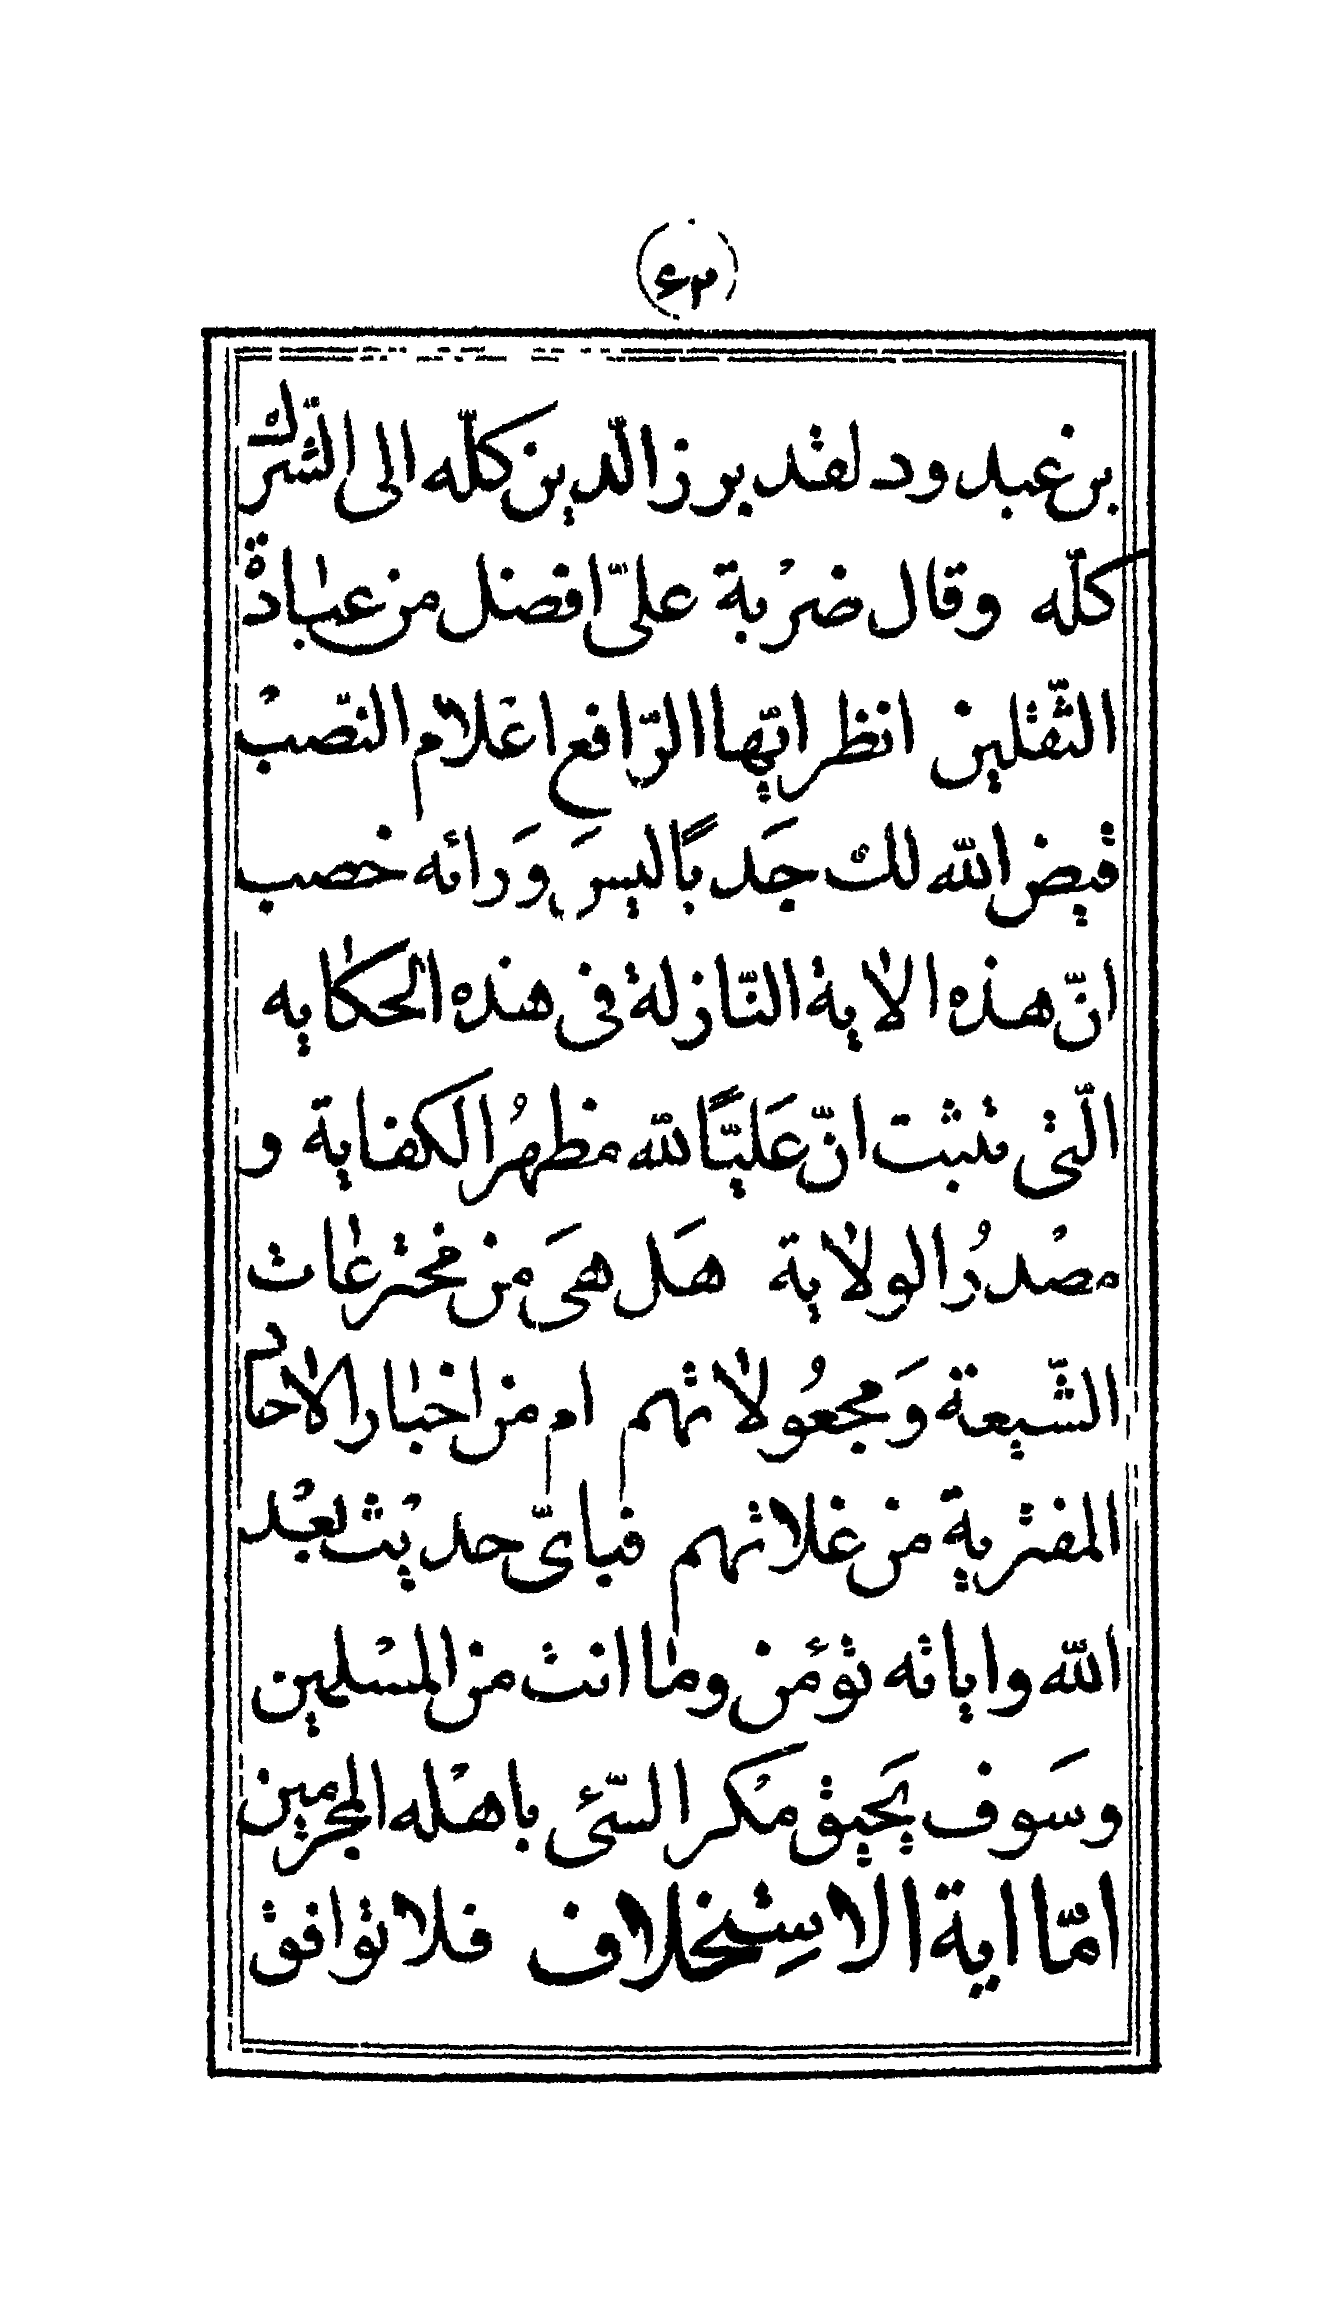 (۶۲)
بن عبد ود لقد برز الّدین کلّه الی الشّرك
کلّه وقال ضرْبة علیّ افضل من عبادة
الثّقلین انظر ایّها الرّافع اعْلام النّصبْ
قیض اللّه لك جَدبًا لیسَ وَرائه خصب
انّ هذه الایة النّازلة فی هذه الحکایه
الّتی تثبت انّ عَلیًّا للّه مظهرُ الکفایة و
مصْدرُ الولایة هَل هیَ من مخترعات
الشّیعة وَمجعُولاتهم ام من اخبار الاحاد
المفتریة من غلاتهم فبایّ حدیْث بعْد
اللّه وایاته تؤْمن وما انت من المسْلمین
وسَوف یَحیق مکْر السّیئ باهْله المجرمین
امّا ایة الاسِتخلاف فلا توافق